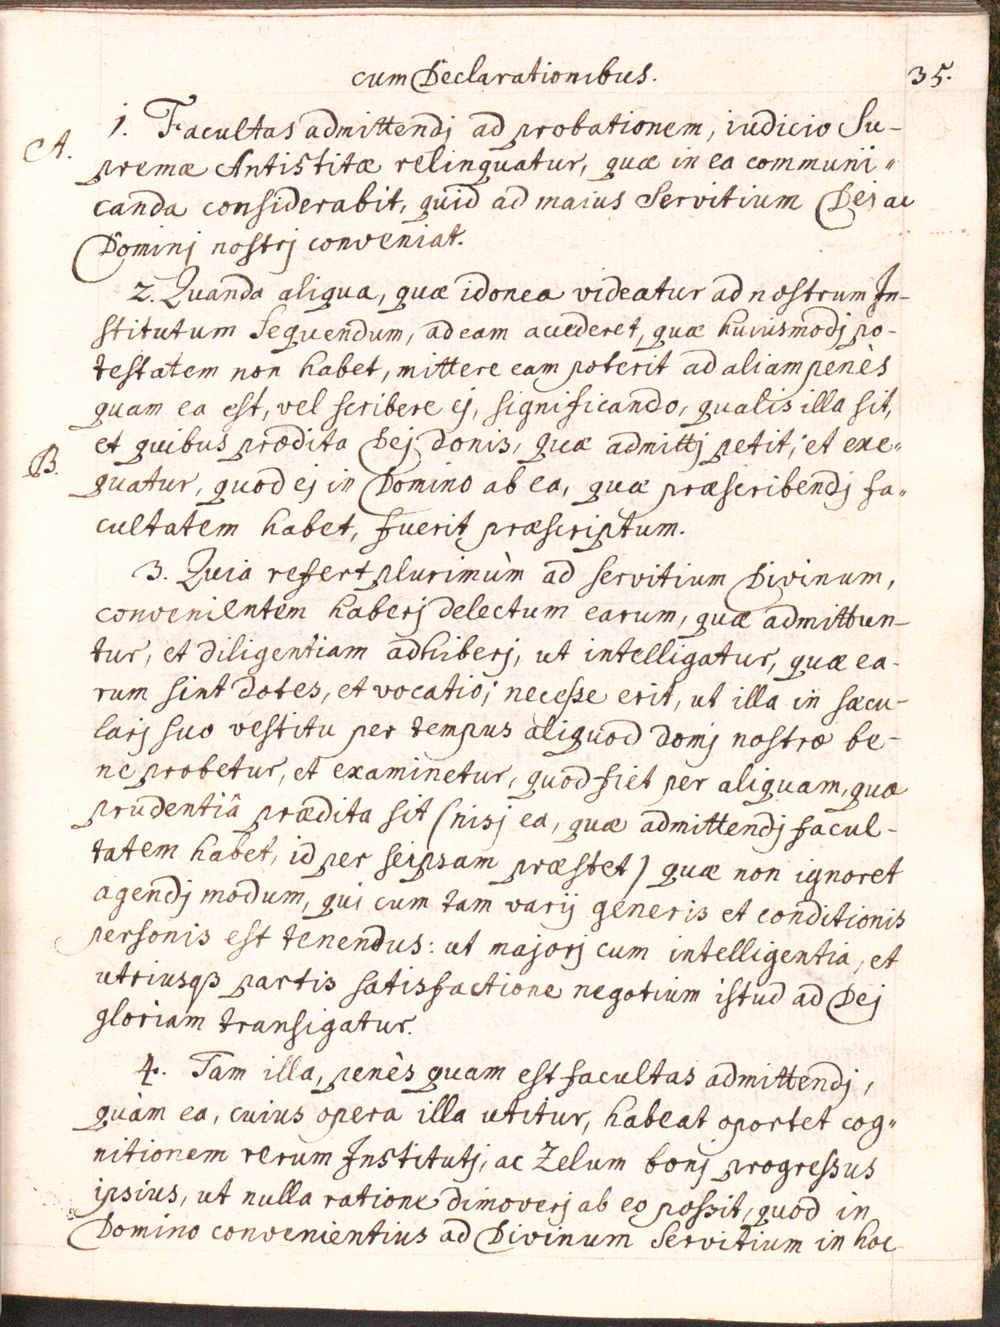 cum Declarationibus.
35.
A.
1. Facultas admittendj ad probationem, iudicio Su-
premæ Antistitæ relinquatur, quæ in ea communi"
canda considerabit, quid ad maius Servitium Dej ac
Dominj nostrj conveniat.
2. Quanda aliqua, quæ idonea videatur ad nostrum In-
stitutum Sequendum, ad eam accederet, quæ huiusmodj po-
testatem non habet, mittere eam poterit ad aliam penès
quam ea est, vel scribere ej, significando, qualis illa sit,
et quibus prædita Dej donis, quæ admittj petit; et exe"
B.
quatur, quod ej in Domino ab ea, quæ præscribendj fa"
cultatem habet, fuerit præscriptum.
3. Quia refert plurimùm ad servitium Divinum,
convenientem haberj delectum earum, quæ admittun-
tur, et diligentiam adhiberj, ut intelligatur, quæ ea-
rum sint dotes, et vocatio; necesse erit, ut illa in sæcu-
larj suo vestitu per tempus aliquod domj nostræ be-
ne probetur, et examinetur, quod fiet per aliquam, quæ
prudentiâ prædita sit (nisj ea, quæ admittendj facul-
tatem habet, id per seipsam præstet) quæ non ignoret
agendj modum, qui cum tam varij generis et conditionis
personis est tenendus: ut majorj cum intelligentia, et
utriusqȝ partis satisfactione negotium istud ad Dej
gloriam transigatur.
4. Tam illa, penès quam est facultas admittendj,
quàm ea, cuius opera illa utitur, habeat oportet cog"
nitionem rerum Institutj, ac Zelum bonj progressus
ipsius, ut nulla ratione dimoverj ab eo possit, quod in
Domino convenientius ad Divinum Servitium in hoc